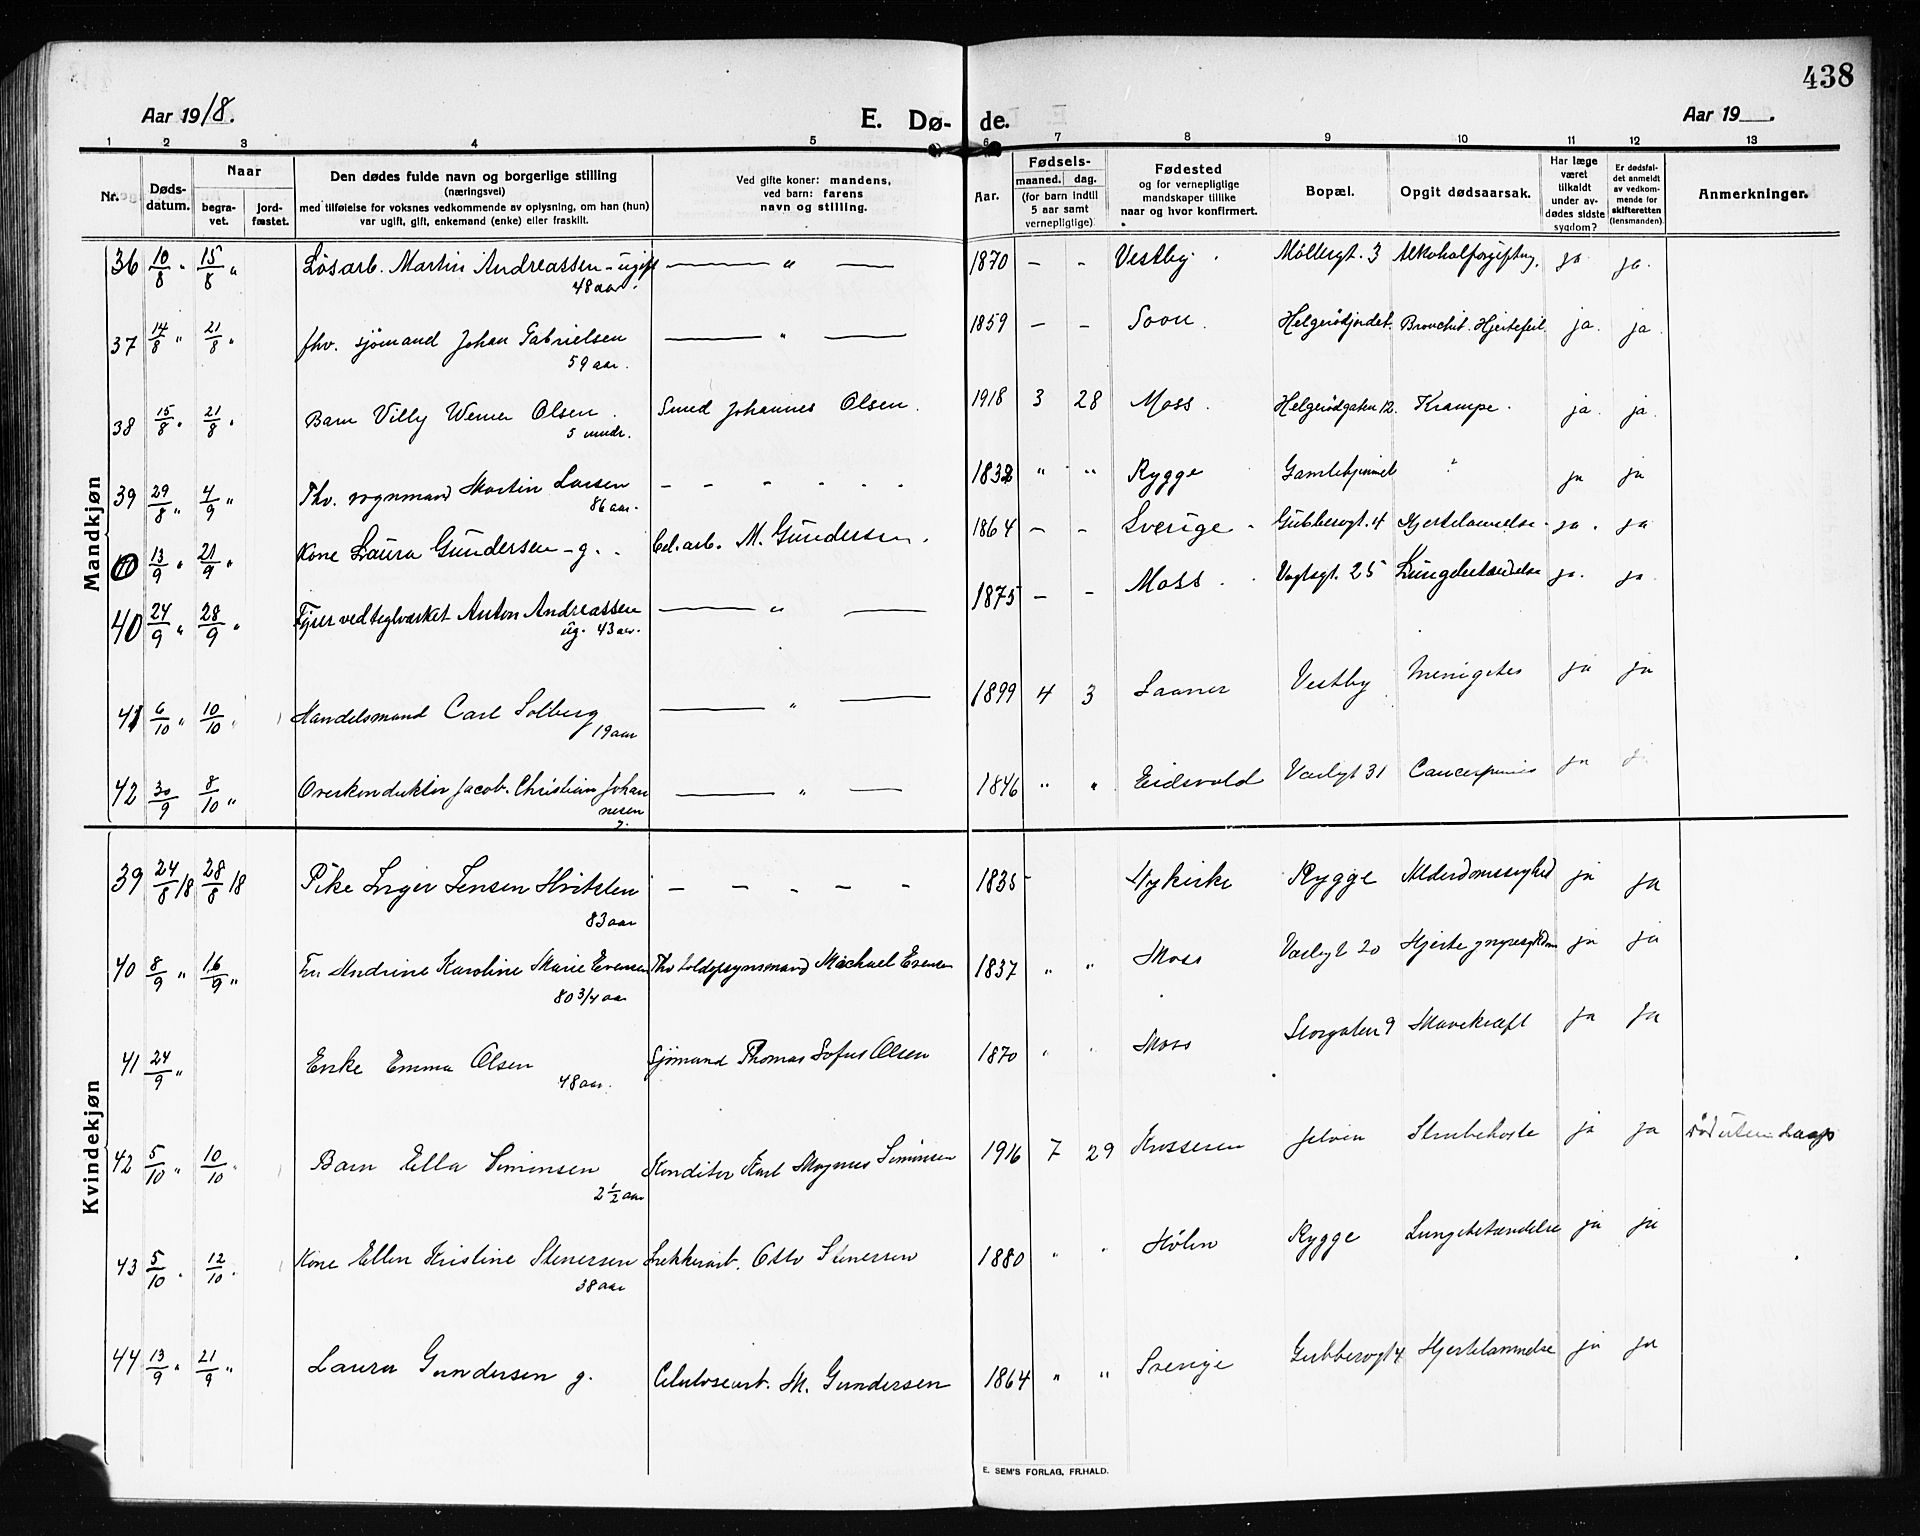 438
Aar 1918. E. Dø- de. Aar 19___.
1 2 3 4 5 6 7 8 9 10 11 12 13
Nr. Døds-datum. Naar begra-vet. jord-fæstet. Den dødes fulde navn og borgerlige stilling (næringsvei) med tilføielse for voksnes vedkommende av oplysning, om han (hun) var ugift, gift, enkemand (enke) eller fraskilt. Ved gifte koner: mandens, ved barn: farens navn og stilling. Aar. Fødsels- maaned. dag. (for barn indtil 5 aar samt vernepligtige) Fødested og for vernepligtige mandskaper tillike naar og hvor konfirmert. Bopæl. Opgit dødsaarsak. Har læge været tilkaldt under av-dødes sidste sygdom? Er dødsfal-det anmeldt av vedkom-mende for skifteretten (lensmanden). Anmerkninger.
Mandkjøn
36 10/8 " 15/8 " Løsarb. Martin Andreassen - ugift 48 aar. — " — 1870 - - Vestby. Møllergt. 3 Alkoholforgiftng. ja ja.
37 14/8 " 21/8 " fhv. sjømand Johan Gabrielsen 59 aar. — " — 1859 - - Soon. Helgerødjordet. Bronchit. Hjertefeil. ja. ja.
38 15/8 " 21/8 " Barn Villy Werner Olsen. 5 mndr. Smed Johannes Olsen. 1918 3 28 Moss. Helgerødgaten 12. Krampe. ja. ja.
39 29/8 " 4/9 " Fhv. vognmand Martin Larsen 86 aar. - - - - - - 1832 " " Rygge " ja ja
40 13/9 " 21/9 " Kone Laura Gundersen - g. Cel. arb. M. Gundersen. 1864 - - Sverige. Gubberogt. 4 Hjertelammelse. ja. ja
40 24/9 " 28/9 " Fyrer ved teglverket Anton Andreassen ug. 43 aar. — " — 1875 - - Moss. Vogtsgt. 25 Lungebetændelse ja. ja.
41 6/10 " 10/10 " Handelsmand Carl Solberg 19 aar — " — 1899 4 3 Saaner Vestby Meningites ja ja
42 30/9 8/10 " Overkonduktør Jacob Christian Johannesen g. — " — 1846 " " Eidsvold Varlgt 31 Cancer penis ja j
Kvindekjøn
39 24/8 18 28/8 18 Pike Inger Jensen 83 aar - - - - - 1835 Nykirke Rygge Alderdomssvghed ja ja
40 8/9 " 16/9 " Fru Andrine Karoline Marie Evensen 80 3/4 aar Fhv toldopsynsmand Michael Evensen 1837 " " Moss Varlgt 20 ja ja
41 24/9 " Enke Emma Olsen 48 aar. Sjømand Thomas Sofus Olsen 1870 " " Moss Storgaten 9 Mavekræft ja ja
42 5/10 " 10/10 " Barn Ella Simensen 2 1/2 aar Konditor Karl Magnus Simensen 1916 7 29 Krosseren Jeløen Strubehoste ja ja Død uten daap
43 5/10 " 12/10 " Kone Ellen Kristine Stenersen 38 aar Otto Stenersen 1880 " " Hølen Rygge Lungebetændelse ja ja
44 13/9 " 21/9 " Laura Gundersen g. Celuloscarb. M. Gundersen 1864 " " Sverige Gubberogt 4 Hjertelammelse ja ja
E. SEM'S FORLAG, FR.HALD.